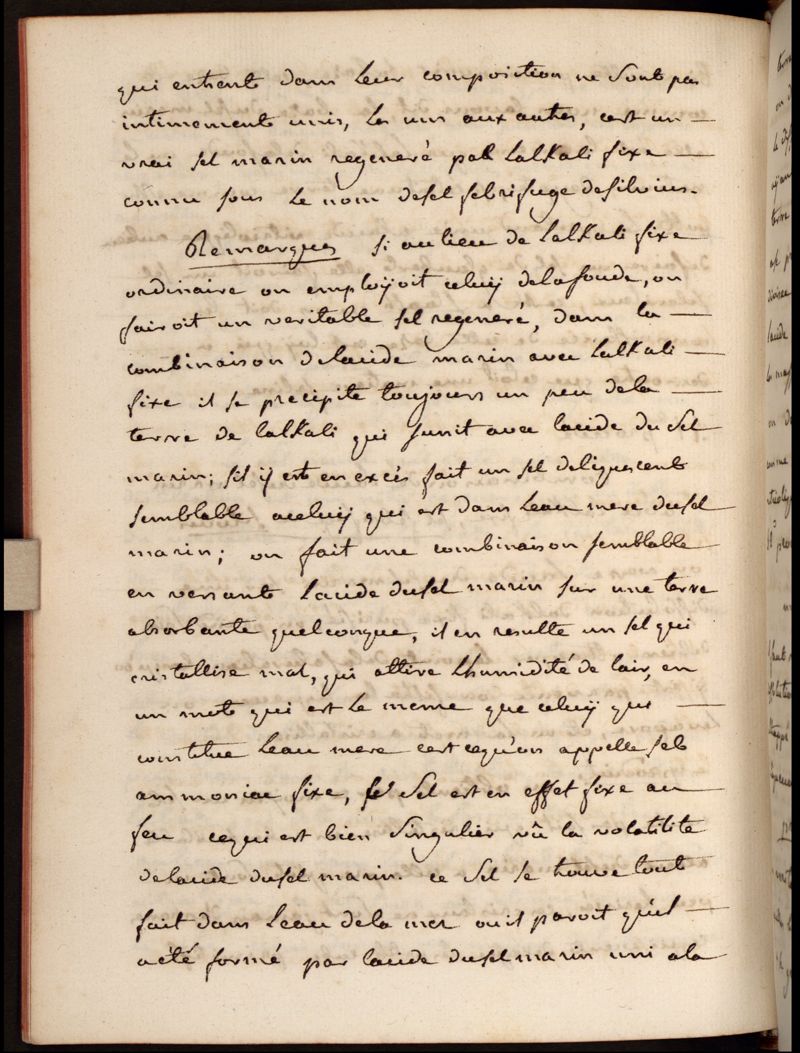 qui entrent dans leur composition ne sont pas
intimement unis, les uns aux autres, cest un —
vrai sel marin regeneré par Lalkali fixe —
connu sous le nom de sel febrifuge de silvius.
Remarques si au lieu de Lalkali fixe
ordinaire on employoit celuy de la soude, on
fairoit un veritable sel regeneré, dans la —
combinaison de lacide marin avec Lalkali —
fixe il se precipite toujours un peu de la —
terre de lalkali qui sunit avec lacide du sel
marin; sil y est en excés fait un sel deliquescent
semblable a celuy qui est dans Leau mere du sel
marin; on fait une combinaison semblable
en versant Lacide du sel marin sur une terre
absorbante quelconque, il en resulte un sel qui
cristallise mal, qui attire Lhumidité de lair, en
un mot qui est le meme que celuy qui —
constitue Leau mere cest ce qu'on appelle sel
ammoniac fixe, ce sel est en effet fixe au
feu ce qui est bien singulier vû la volatilite
de lacide du sel marin. ce sel se trouve tout
fait dans Leau de la mer ou il paroit qu'il —
a été formé par lacide du sel marin uni a la